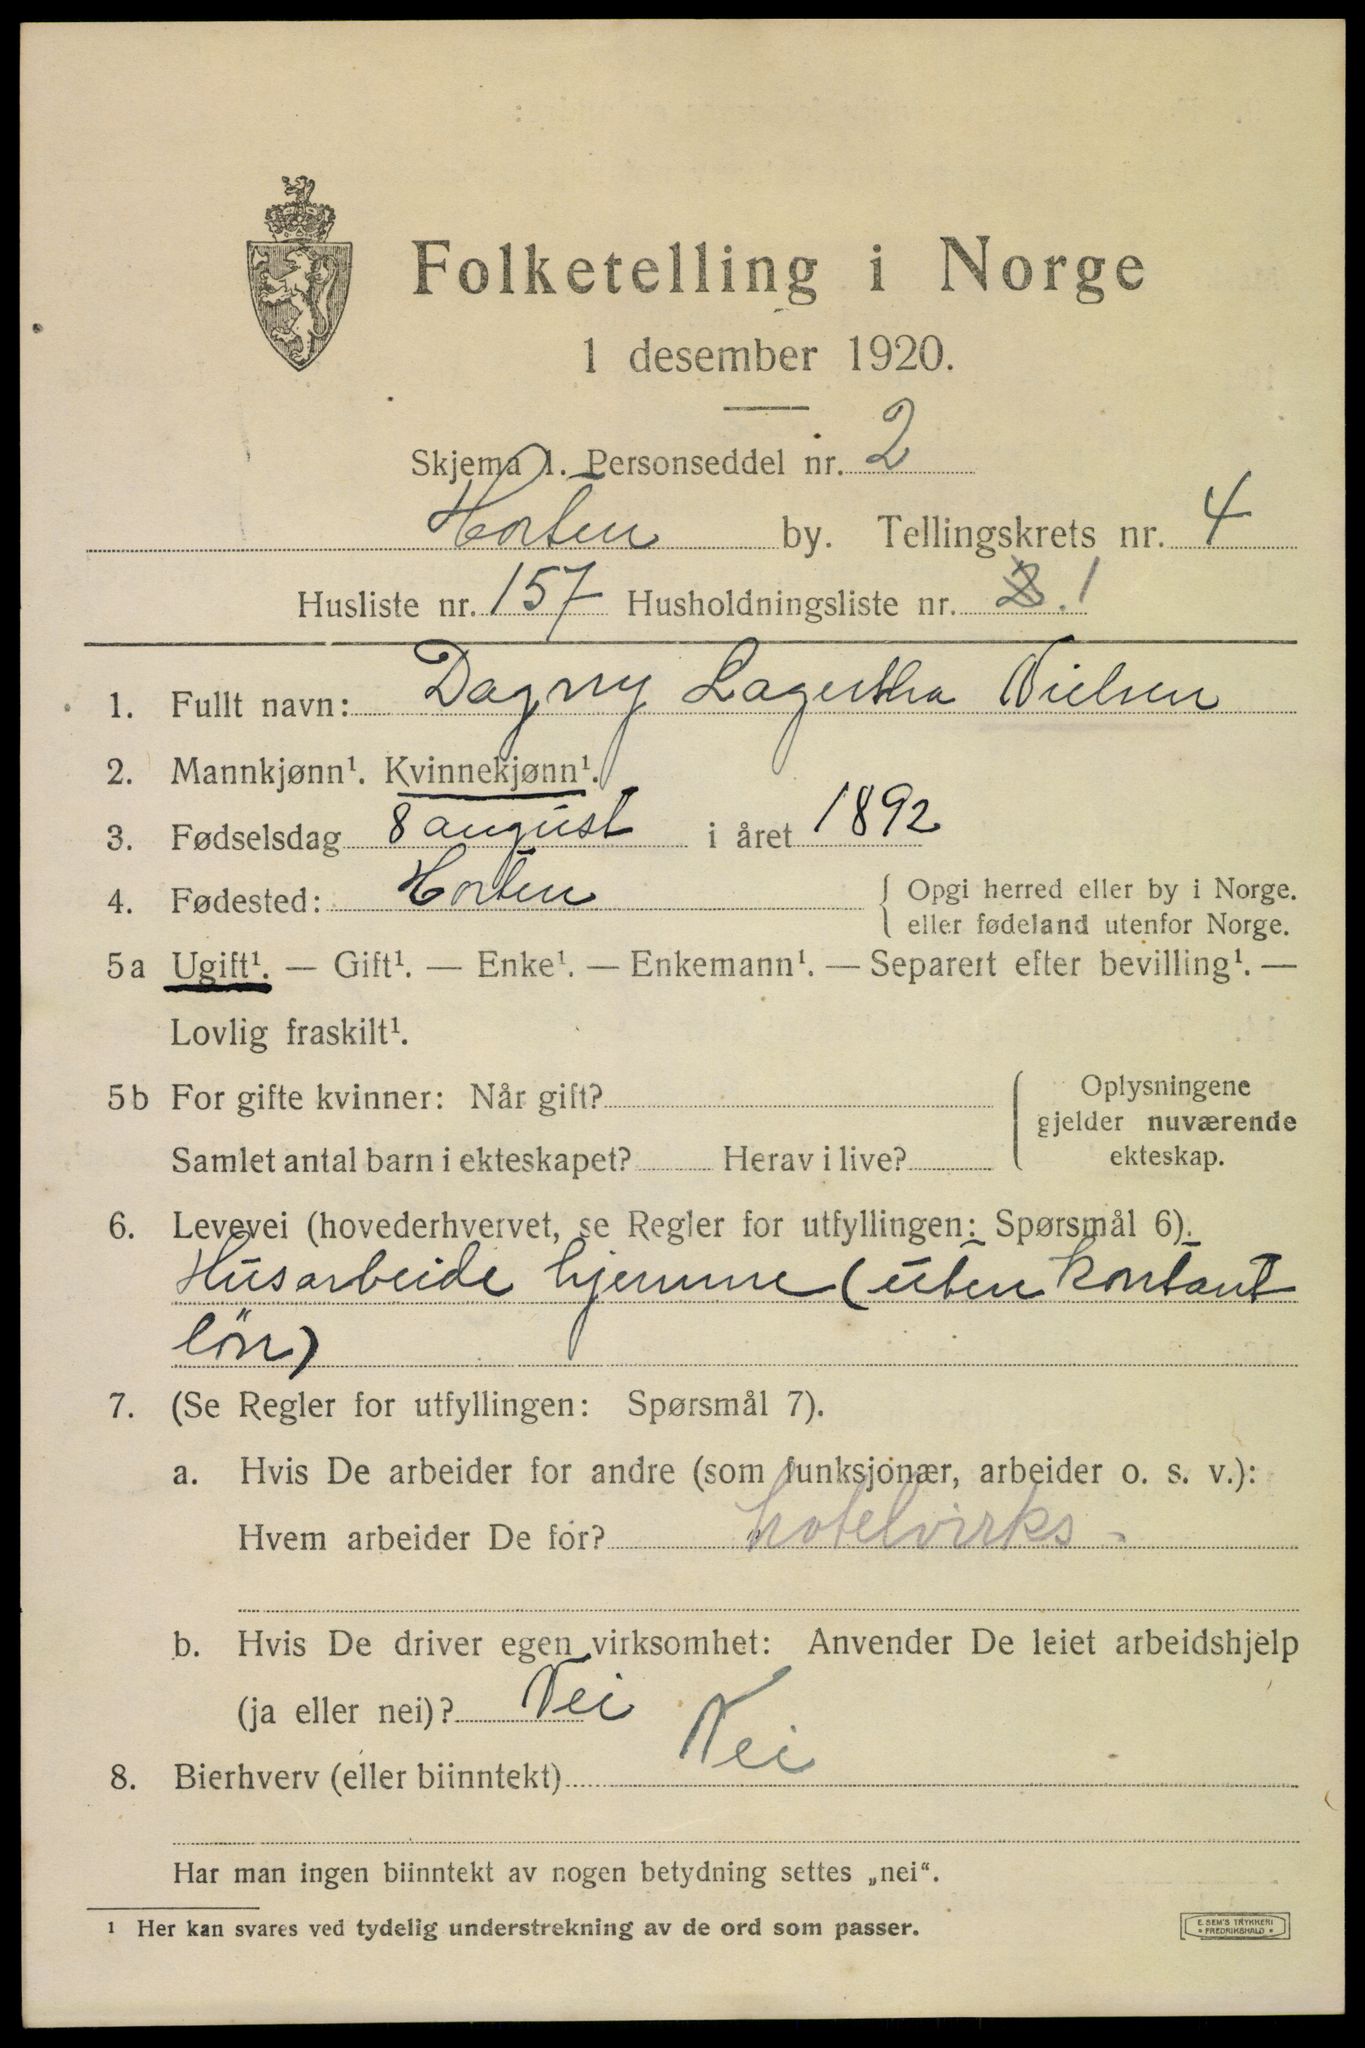 Folketelling i Norge
1 desember 1920.
Skjema 1. Personseddel nr. 2
Horten by. Tellingskrets nr. 4
Husliste nr. 157 Husholdningsliste nr. 1
1. Fullt navn: Dagny Lagertha Nielsen
2. Mannkjønn¹. Kvinnekjønn¹.
3. Fødselsdag 8 august i året 1892
4. Fødested: Horten { Opgi herred eller by i Norge.
eller fødeland utenfor Norge.
5a Ugift¹. — Gift¹. — Enke¹. — Enkemann¹. — Separert efter bevilling¹. —
Lovlig fraskilt¹.
5b For gifte kvinner: Når gift? Oplysningene
gjelder nuværende
Samlet antal barn i ekteskapet? Herav i live? ekteskap.
6. Levevei (hovederhvervet, se Regler for utfyllingen: Spørsmål 6).
Husarbeide hjemme (uten kontant
lön)
7. (Se Regler for utfyllingen: Spørsmål 7).
a. Hvis De arbeider for andre (som funksjonær, arbeider o. s. v.):
Hvem arbeider De for? hotelvirks.
b. Hvis De driver egen virksomhet: Anvender De leiet arbeidshjelp
(ja eller nei)? Nei
8. Bierhverv (eller biinntekt) Nei
Har man ingen biinntekt av nogen betydning settes „nei“.
¹ Her kan svares ved tydelig understrekning av de ord som passer.
E. SEM'S TRYKKERI
• FREDRIKSHALD •